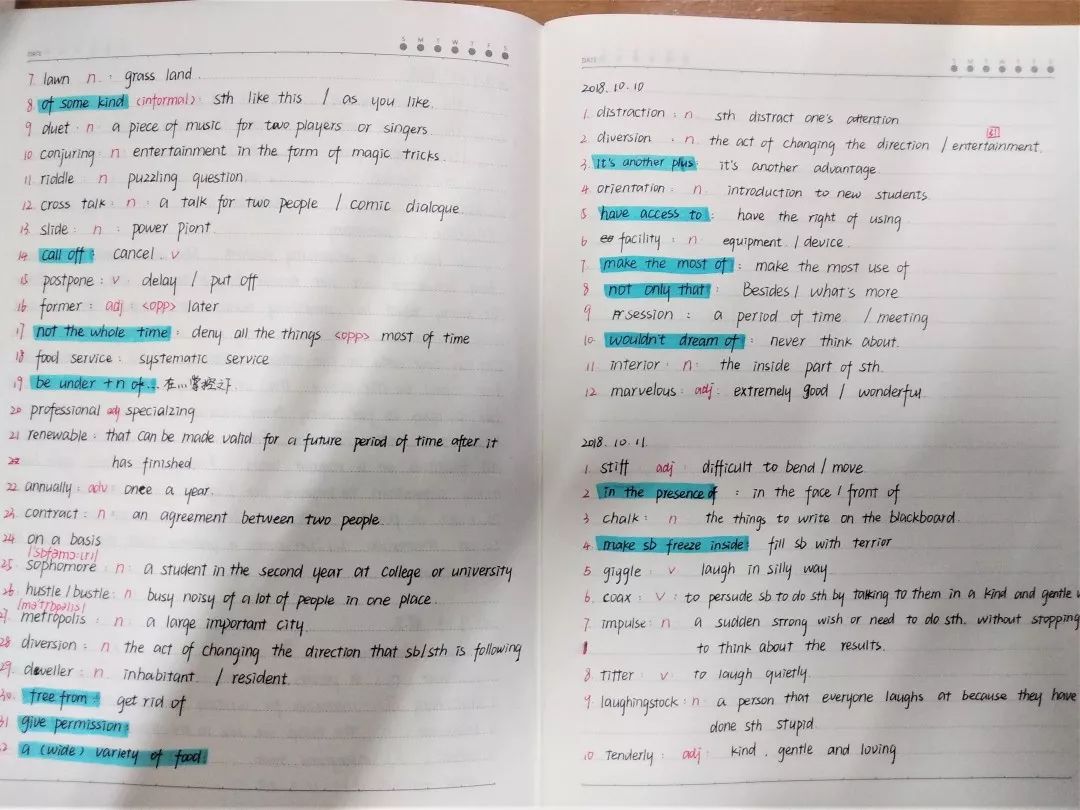 DATE
S M T W T F S
7. lawn n.: grass land.
8. of some kind (informal): sth like this / as you like.
9 duet: n: a piece of music for two players or singers.
10 conjuring: n: entertainment in the form of magic tricks.
11. riddle n puzzling question.
12. cross talk: n: a talk for two people / comic dialogue.
13. slide: n: power piont.
14. call off: cancel. v
15 postpone: v. delay / put off
16 former: adj: <opp> later
17 not the whole time: deny all the things <opp> most of time
18 food service: systematic service
19. be under +n of... 在...掌控之下
20 professional adj specializing
21 renewable: that can be made valid for a future period of time after it
22
has finished.
22. annually: adv: once a year.
23. contract: n: an agreement between two people.
24 on a basis
25. sophomore: n: a student in the second year at college or university
26. hustle / bustle: n busy noisy of a lot of people in one place.
27. metropolis: n: a large important city.
28 diversion: n: the act of changing the direction that sb/sth is following
29. dweller: n: inhabitant / resident.
30. free from: get rid of
31 give permission:
32 a (wide) variety of food:
DATE
S M T W T F S
2018. 10. 10
1. distraction: n sth distract one's attention
2. diversion: n the act of changing the direction / entertainment.
3. it's another plus: it's another advantage.
4 orientation: n. introduction to new students
5 have access to: have the right of using
6 facility: n equipment. / device.
7 make the most of: make the most use of
8 not only that: Besides / what's more
9 session: a period of time / meeting
10. wouldn't dream of: never think about.
11. interior: n: the inside part of sth.
12 marvelous: adj: extremely good / wonderful.
2018. 10. 11.
1. stiff adj: difficult to bend / move
2 in the presence of : in the face / front of
3 chalk: n the things to write on the blackboard.
4. make sb freeze inside: fill sb with terrior
5 giggle: v laugh in silly way
6. coax: v: to persude sb to do sth by talking to them in a kind and gentle
7. impulse: n a sudden strong wish or need to do sth. without stopping
to think about the results.
8 titter: v. to laugh quietly.
9. laughingstock: n: a person that everyone laughs at because they have
done sth stupid.
10 tenderly: adj: kind. gentle and loving